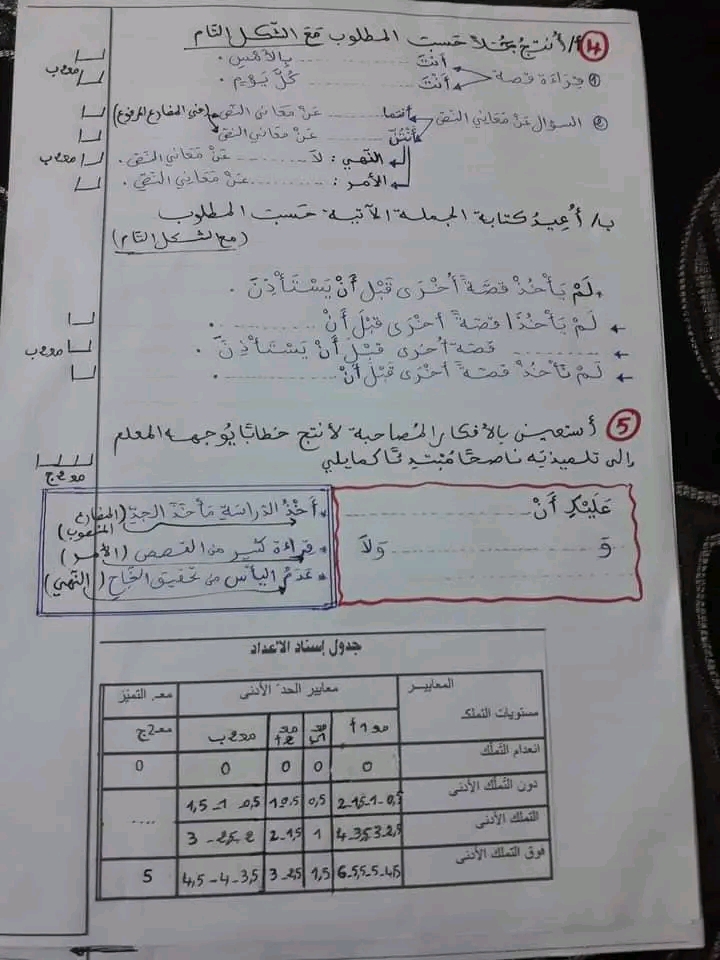 ④ أ/ أُنْتِجُ جُمَلاً حَسبَ المطلوب مَعَ الشّكل التّام
① قِرَاءَة قصة
أَنْتَ ............ بِالأَمْسِ.
أَنْتَ ............ كُلَّ يَوْمٍ.
مع2ب
② السؤال عَنْ مَعَانِي النّصّ
أنتما ............ عَنْ مَعَانِي النّصّ (في المضارع المرفوع)
أَنْتُنَّ ............ عَنْ مَعَانِي النّصّ
النّهي : لاَ ............ عَنْ مَعَانِي النّصّ.
مع2ب
الأمر : ............ عَنْ مَعَانِي النّصّ.
ب/ أُعِيدُ كتابة الجملة الآتية حَسبَ المطلوب
(مع الشكل التّام)
• لَمْ يَأْخُذْ قصّةً أُخْرَى قَبْلَ أَنْ يَسْتَأْذِنَ.
← لَمْ يَأْخُذَا قصّةً أخْرَى قَبْلَ أَنْ ............ .
← ............ قصّة أُخرى قَبْلَ أَنْ يَسْتَأْذِنَّ.
مع2ب
← لَمْ تَأْخُذْ قصّةً أخْرَى قَبْلَ أَنْ ............ .
⑤ أستعين بالأفكار المُصاحبة لأنتج خطابًا يُوجهه المعلم
إلى تلميذيه ناصحًا مُبْتدِئًا كما يلي
مع2ج
عَلَيْكُمَا أَنْ ............
وَ ............ وَلاَ ............
* أَخْذُ الدّراسَةِ مَأْخَذَ الجدّ (المضارع المنصوب)
* قراءة كثير من القصص (الأمر)
* عَدَمُ اليَأْس من تحقيق النّجاح (النّهي)
جدول إسناد الأعداد
المعاييـر
معايير الحدّ الأدنى
معـ. التميّز
مستويات التملك
مع1أ
مع2أ
مع2ب
مع2ج
انعدام التّملّك
0 0 0 0 0
دون التّملّك الأدنى
0,5-1-1,5-2 0,5 0,5-1 0,5-1-1,5
....
التملك الأدنى
2,5-3-3,5-4 1 1,5-2 2-2,5-3
فوق التملك الأدنى
4,5-5-5,5-6 1,5 2,5-3 3,5-4-4,5 5